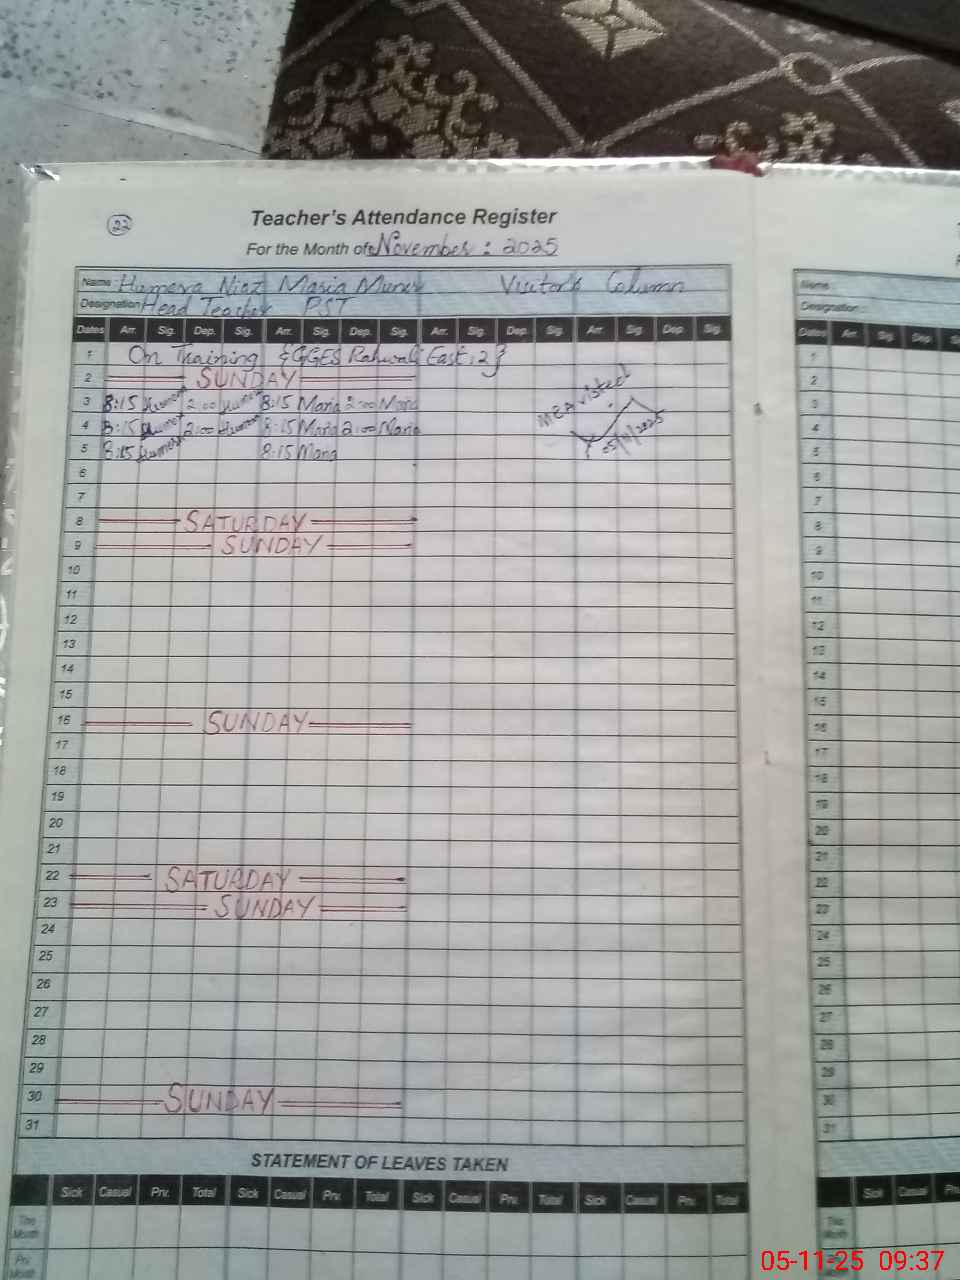 22
Teacher's Attendance Register
For the Month of November : 2025
Name Humera Niaz Maria Munir Visitor's Column
Designation Head Teacher PST
Dates Arr. Sig. Dep. Sig. Arr. Sig. Dep. Sig. Arr. Sig. Dep. Sig. Arr. Sig. Dep. Sig.
1 On Training {GGES Rahwali East, 2}
2 SUNDAY
3 8:15 Humera 2:00 Humera 8:15 Maria 2:00 Maria
MEA visited
4 8:15 Humera 2:00 Humera 8:15 Maria 2:00 Maria
05/11/2025
5 8:15 Humera 8:15 Maria
6
7
8 SATURDAY
9 SUNDAY
10
11
12
13
14
15
16 SUNDAY
17
18
19
20
21
22 SATURDAY
23 SUNDAY
24
25
26
27
28
29
30 SUNDAY
31
STATEMENT OF LEAVES TAKEN
Sick Casual Prv. Total Sick Casual Prv. Total Sick Casual Prv. Total Sick Casual Prv. Total
The Month
Prv. Month
Name
Designation
Dates Arr. Sig. Dep.
1
2
3
4
5
6
7
8
9
10
11
12
13
14
15
16
17
18
19
20
21
22
23
24
25
26
27
28
29
30
31
Sick Casual
The Month
Prv. Month
05-11-25 09:37